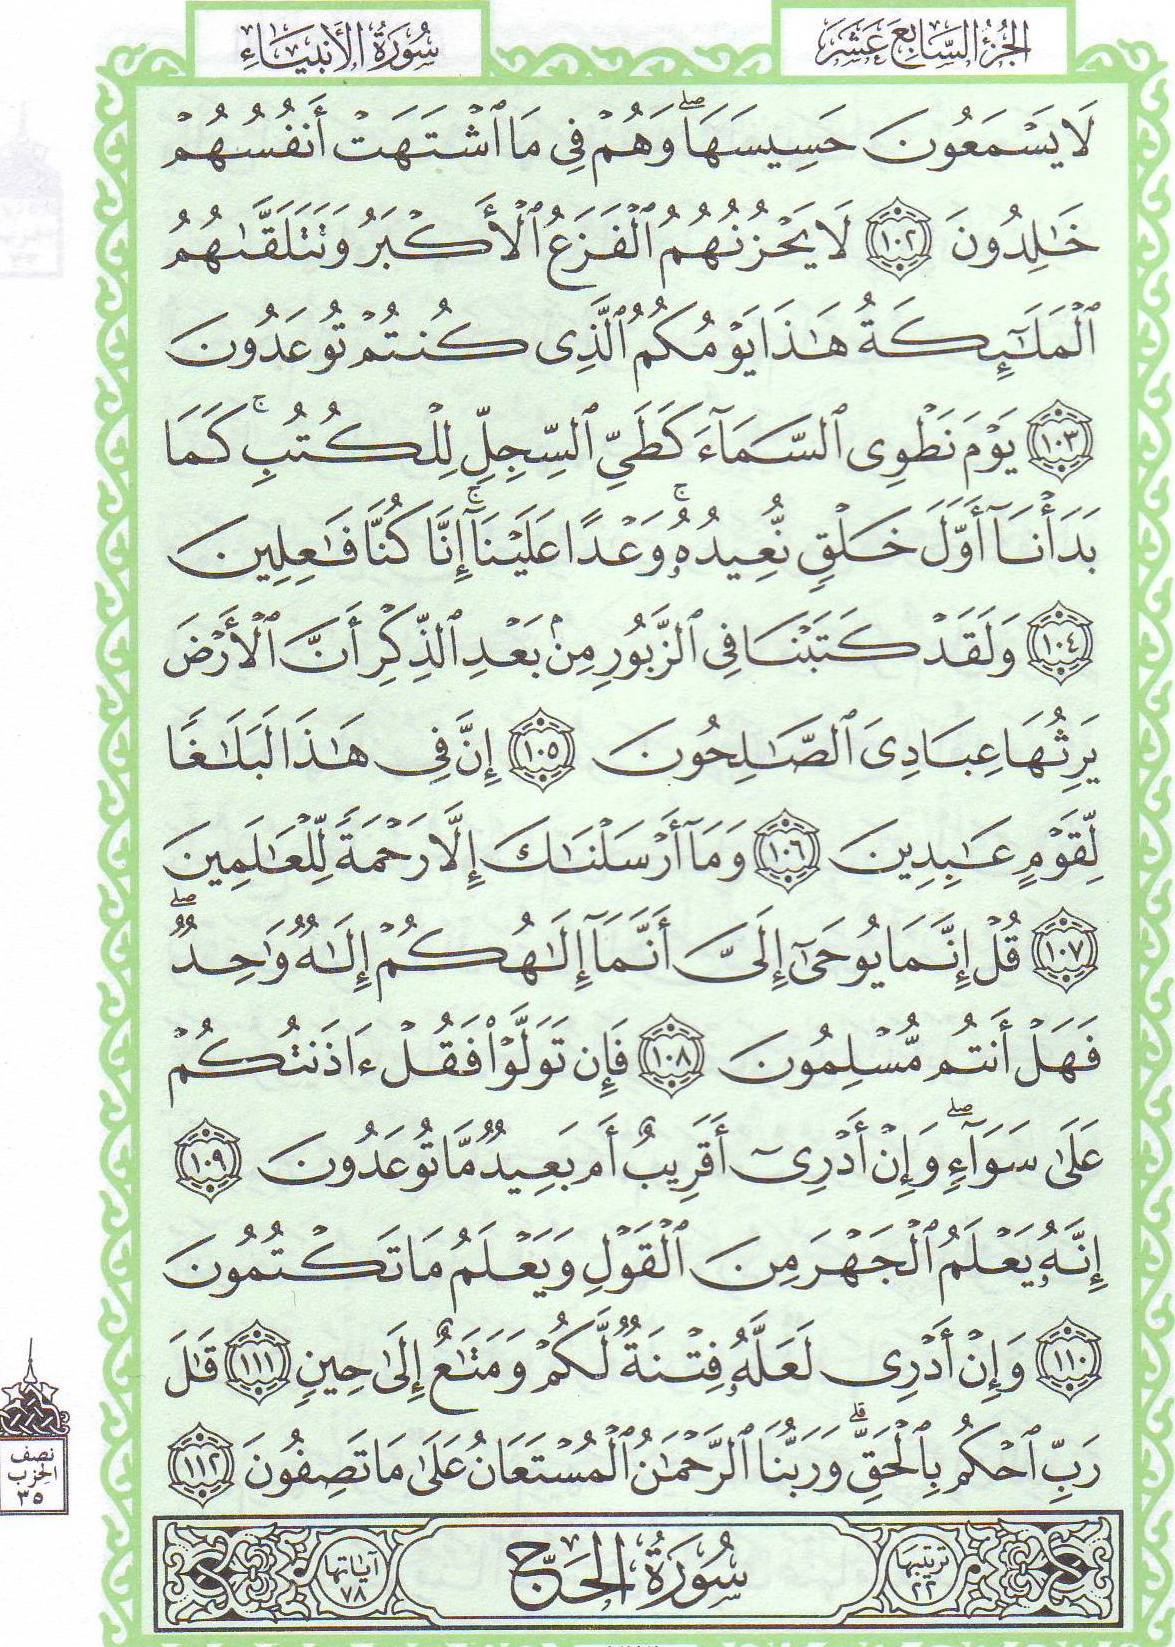 الجزء السابع عشر
سورة الأنبياء
لَا يَسْمَعُونَ حَسِيسَهَا ۖ وَهُمْ فِى مَا ٱشْتَهَتْ أَنفُسُهُمْ
خَٰلِدُونَ ١٠٢ لَا يَحْزُنُهُمُ ٱلْفَزَعُ ٱلْأَكْبَرُ وَتَتَلَقَّىٰهُمُ
ٱلْمَلَٰٓئِكَةُ هَٰذَا يَوْمُكُمُ ٱلَّذِى كُنتُمْ تُوعَدُونَ
١٠٣ يَوْمَ نَطْوِى ٱلسَّمَآءَ كَطَىِّ ٱلسِّجِلِّ لِلْكُتُبِ ۚ كَمَا
بَدَأْنَآ أَوَّلَ خَلْقٍ نُّعِيدُهُۥ ۚ وَعْدًا عَلَيْنَآ ۚ إِنَّا كُنَّا فَٰعِلِينَ
١٠٤ وَلَقَدْ كَتَبْنَا فِى ٱلزَّبُورِ مِنۢ بَعْدِ ٱلذِّكْرِ أَنَّ ٱلْأَرْضَ
يَرِثُهَا عِبَادِىَ ٱلصَّٰلِحُونَ ١٠٥ إِنَّ فِى هَٰذَا لَبَلَٰغًا
لِّقَوْمٍ عَٰبِدِينَ ١٠٦ وَمَآ أَرْسَلْنَٰكَ إِلَّا رَحْمَةً لِّلْعَٰلَمِينَ
١٠٧ قُلْ إِنَّمَا يُوحَىٰٓ إِلَىَّ أَنَّمَآ إِلَٰهُكُمْ إِلَٰهٌ وَٰحِدٌ ۖ
فَهَلْ أَنتُم مُّسْلِمُونَ ١٠٨ فَإِن تَوَلَّوْا۟ فَقُلْ ءَاذَنتُكُمْ
عَلَىٰ سَوَآءٍ ۖ وَإِنْ أَدْرِىٓ أَقَرِيبٌ أَم بَعِيدٌ مَّا تُوعَدُونَ ١٠٩
إِنَّهُۥ يَعْلَمُ ٱلْجَهْرَ مِنَ ٱلْقَوْلِ وَيَعْلَمُ مَا تَكْتُمُونَ
١١٠ وَإِنْ أَدْرِى لَعَلَّهُۥ فِتْنَةٌ لَّكُمْ وَمَتَٰعٌ إِلَىٰ حِينٍ ١١١ قَٰلَ
رَبِّ ٱحْكُم بِٱلْحَقِّ ۗ وَرَبُّنَا ٱلرَّحْمَٰنُ ٱلْمُسْتَعَانُ عَلَىٰ مَا تَصِفُونَ ١١٢
نصف
الحزب
٣٥
ترتيبها
٢٢
سُورَةُ الحَجّ
آياتها
٧٨